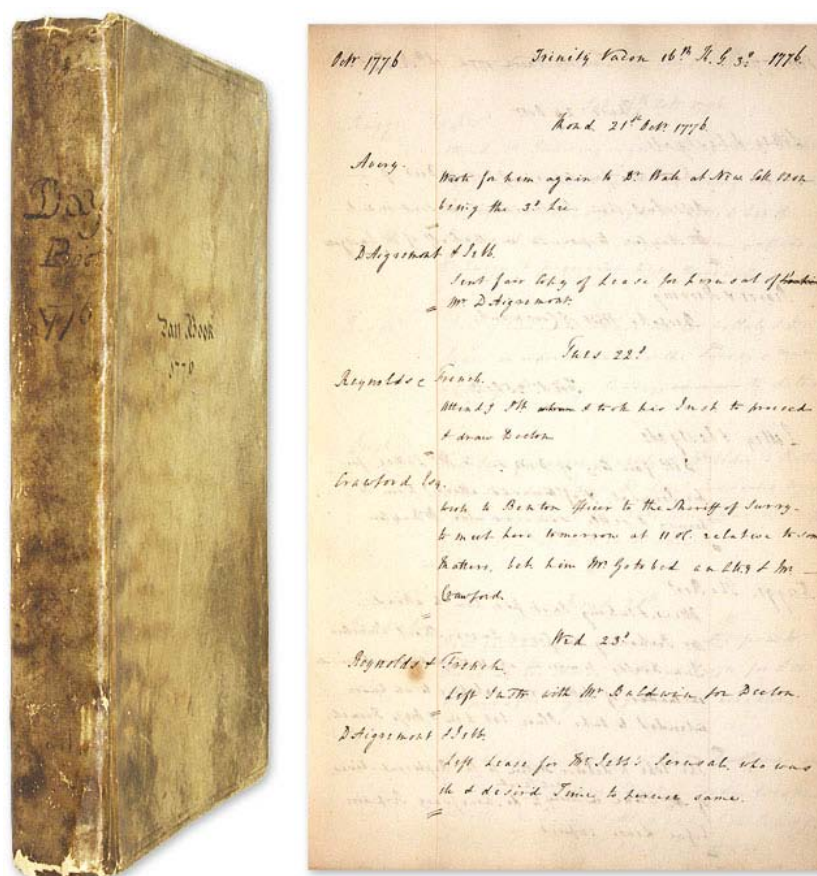 Day
Book
1776
Day Book
1776
Octr 1776 Trinity Vacon 16th K. G. 3d 1776.
Mond 21st Octr 1776.
Avery.
Wrote for him again to Dr. at New Coll Oxon
being the 3d Lre
D'Aigremont & Jebb.
Sent fair Copy of Lease for perusal of
Mr. D'Aigremont.
Tues 22d
Reynolds & French.
Attendg & took his Instr to proceed
& draw Declon
Crawford Esq.
Wrote to Benton Officer to the Sheriff of Surry
to meet here tomorrow at 11 oC. relative to som
Matters, bet. him Mr. Gotobed an & Mr.
Crawford.
Wed 23d
Reynolds & French.
Left Instr with Mr Baldwin for Declon.
D'Aigremont & Jebb.
Left Lease for Mr Jebb's Perusal, who was
& desired Time to peruse same.